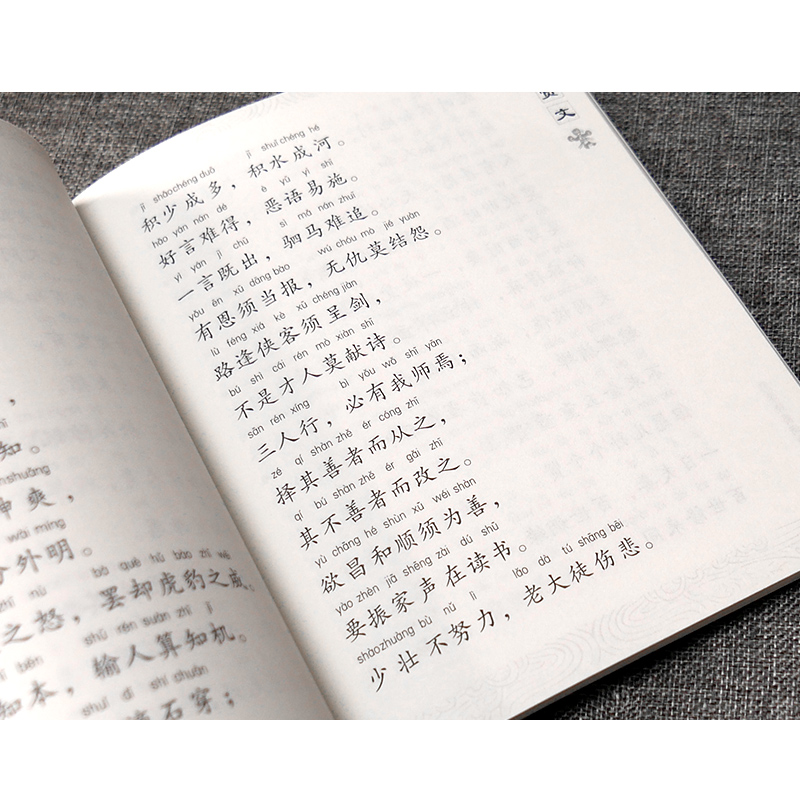 知。
shuǎng
爽，
wài míng
外明。
bà què hǔ bào zhī wēi
之怒，罢却虎豹之威。
shū rén suàn zhī jī
输人算知机。
知本，
shuǐ dī shí chuān
滴石穿；
文
jī shǎo chéng duō jī shuǐ chéng hé
积少成多，积水成河。
hǎo yán nán dé è yǔ yì shī
好言难得，恶语易施。
yì yán jì chū sì mǎ nán zhuī
一言既出，驷马难追。
yǒu ēn xū dāng bào wú chóu mò jié yuàn
有恩须当报，无仇莫结怨。
lù féng xiá kè xū chéng jiàn
路逢侠客须呈剑，
bú shì cái rén mò xiàn shī
不是才人莫献诗。
sān rén xíng bì yǒu wǒ shī yān
三人行，必有我师焉；
zé qí shàn zhě ér cóng zhī
择其善者而从之，
qí bú shàn zhě ér gǎi zhī
其不善者而改之。
yù chāng hé shùn xū wéi shàn
欲昌和顺须为善，
yào zhèn jiā shēng zài dú shū
要振家声在读书。
shàozhuàng bù nǔ lì lǎo dà tú shāng bēi
少壮不努力，老大徒伤悲。